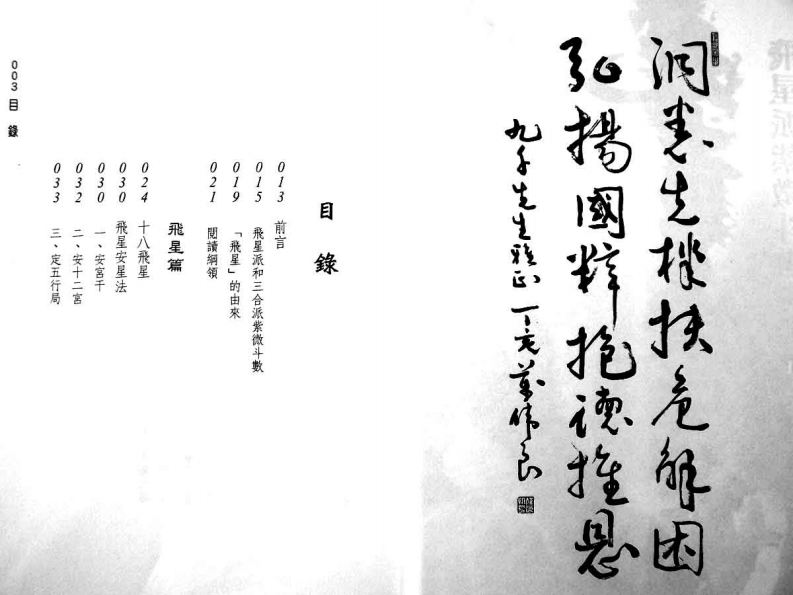 洞悉先機扶危解困
弘揚國粹抱德推恩
九千先生雅正 丁亥 萬偉良
目錄
013 前言
015 飛星派和三合派紫微斗數
019 「飛星」的由來
021 閱讀綱領
飛星篇
024 十八飛星
030 飛星安星法
030 一、安宮干
032 二、安十二宮
033 三、定五行局
003 目錄